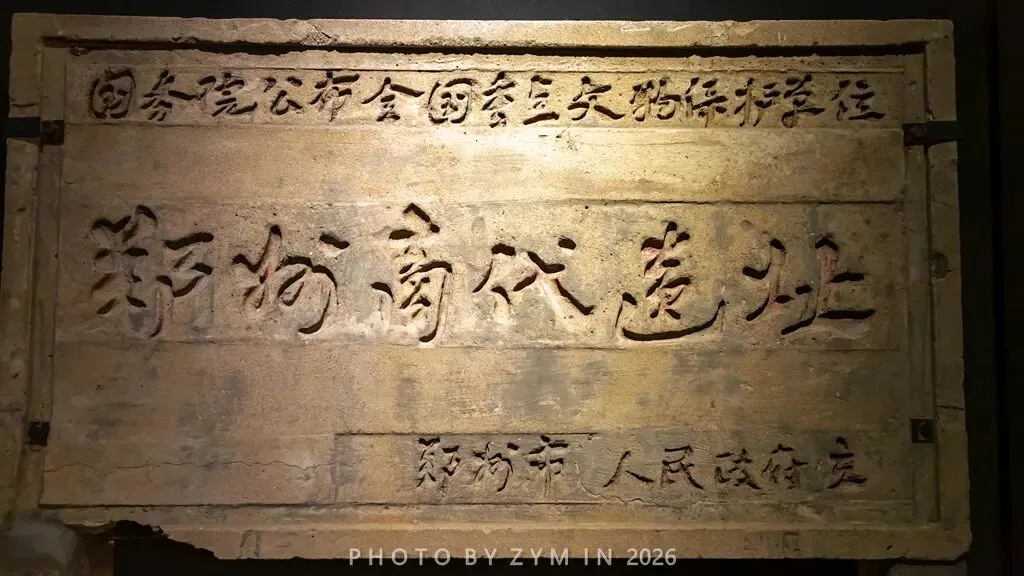 国务院公布全国重点文物保护单位
郑州商代遗址
郑州市人民政府立
PHOTO BY ZYM IN 2026